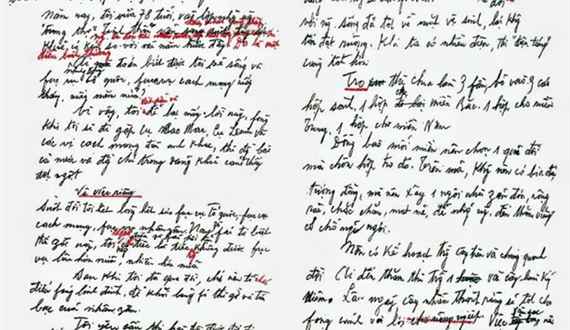 Năm nay, tôi vừa 78 tuổi, vào lớp những
trung thọ
khỏe, so với vài năm trước đây. Đó là một
điều bình thường
đoán biết được tôi sẽ sống và
fục vụ tổ quốc, fục vụ cách mạng mấy
tháng, mấy năm nữa?
Vì vậy, tôi để lại mấy lời này, fòng
khi tôi sẽ đi gặp cụ Lenin và
các vị cách mạng đàn anh khác, thì đ bào
cả nước và đ chí trong đảng khỏi cảm thấy
đột ngột
Về việc riêng
Suốt đời tôi hết lòng hết sức fục vụ Tổ quốc, fục vụ
cách mạng, fục vụ nhân dân. Nay fải từ biệt
thế giới này, tôi tiếc là tiếc không được fục
vụ lâu hơn nữa, nhiều hơn nữa
Sau khi tôi đã qua đời, chớ nên tổ chức
điếu fúng linh đình, để khỏi lãng fí thì giờ và tiền
bạc của nhân dân.
Tôi yêu cầu thi hài tôi
đối với người sống đã tốt về mặt vệ sinh, lại không
tốn đất ruộng. Khi ta có nhiều điện, thì "điện táng"
càng tốt hơn.
Tro thì chia làm 3 fần, bỏ vào 3 cái
hộp sành, 1 hộp cho miền Bắc. 1 hộp cho miền
Trung. 1 hộp cho miền Nam
Đồng bào mỗi miền nên chọn 1 quả đồi
mà chôn hộp tro đó. Trên mả, không nên có bia đá,
tượng đồng, mà nên xây 1 ngôi nhà giản đơn, rộng
rãi, chắc chắn, mát mẻ, để những người đến thăm viếng
có chỗ nghỉ ngơi.
Nên có kế hoạch trồng cây trên và chung quanh
đồi. Ai đến thăm thì trồng 1 cây làm kỷ
niệm. Lâu ngày, cây nhiều thành rừng sẽ tốt cho
fong cảnh và lợi cho nông nghiệp. Việc